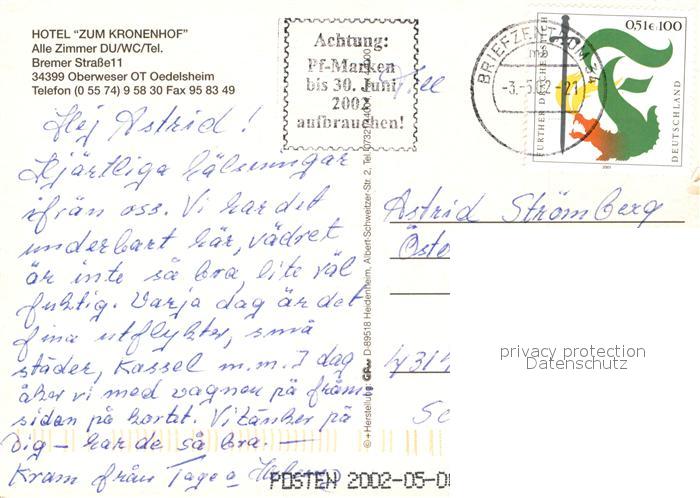 HOTEL "ZUM KRONENHOF"
Alle Zimmer DU/WC/Tel.
Bremer Straße11
34399 Oberweser OT Oedelsheim
Telefon (0 55 74) 9 58 30 Fax 95 83 49
Achtung:
Pf-Marken
bis 30. Juni
2002
aufbrauchen!
BRIEFZENTRUM 34
-3.-5.02-21
0,51€ 100
FURTHER DRACHENSTICH
DEUTSCHLAND
Hej Astrid!
Hjärtliga hälsningar
ifrån oss. Vi har det
underbart här, vädret
är inte så bra, lite väl
fuktig. Varja dag är det
fina utflykter, små
städer, Kassel m.m. I dag
åker vi med vagnen på fram
sidan på kortet. Vi tänker på
Dig – ha det så bra. —
Kram från Tage o
Till
Astrid Strömberg
Öste
privacy protection
Datenschutz
© + Herstellung: D-89518 Heidenheim, Albert-Schweitzer-Str. 2, Tel.
POSTEN 2002-05-0